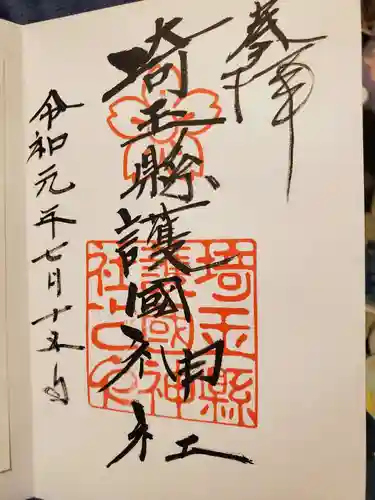 奉拝
埼玉縣護國神社
令和元年七月十五日
埼玉縣
護國神
社之印